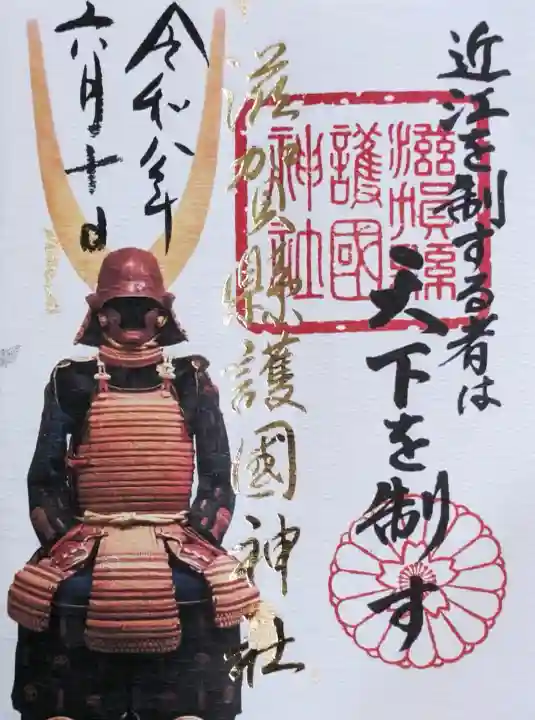 近江を制する者は
天下を制す
滋賀縣
護國
神社
滋賀縣護國神社
令和八年
六月十日